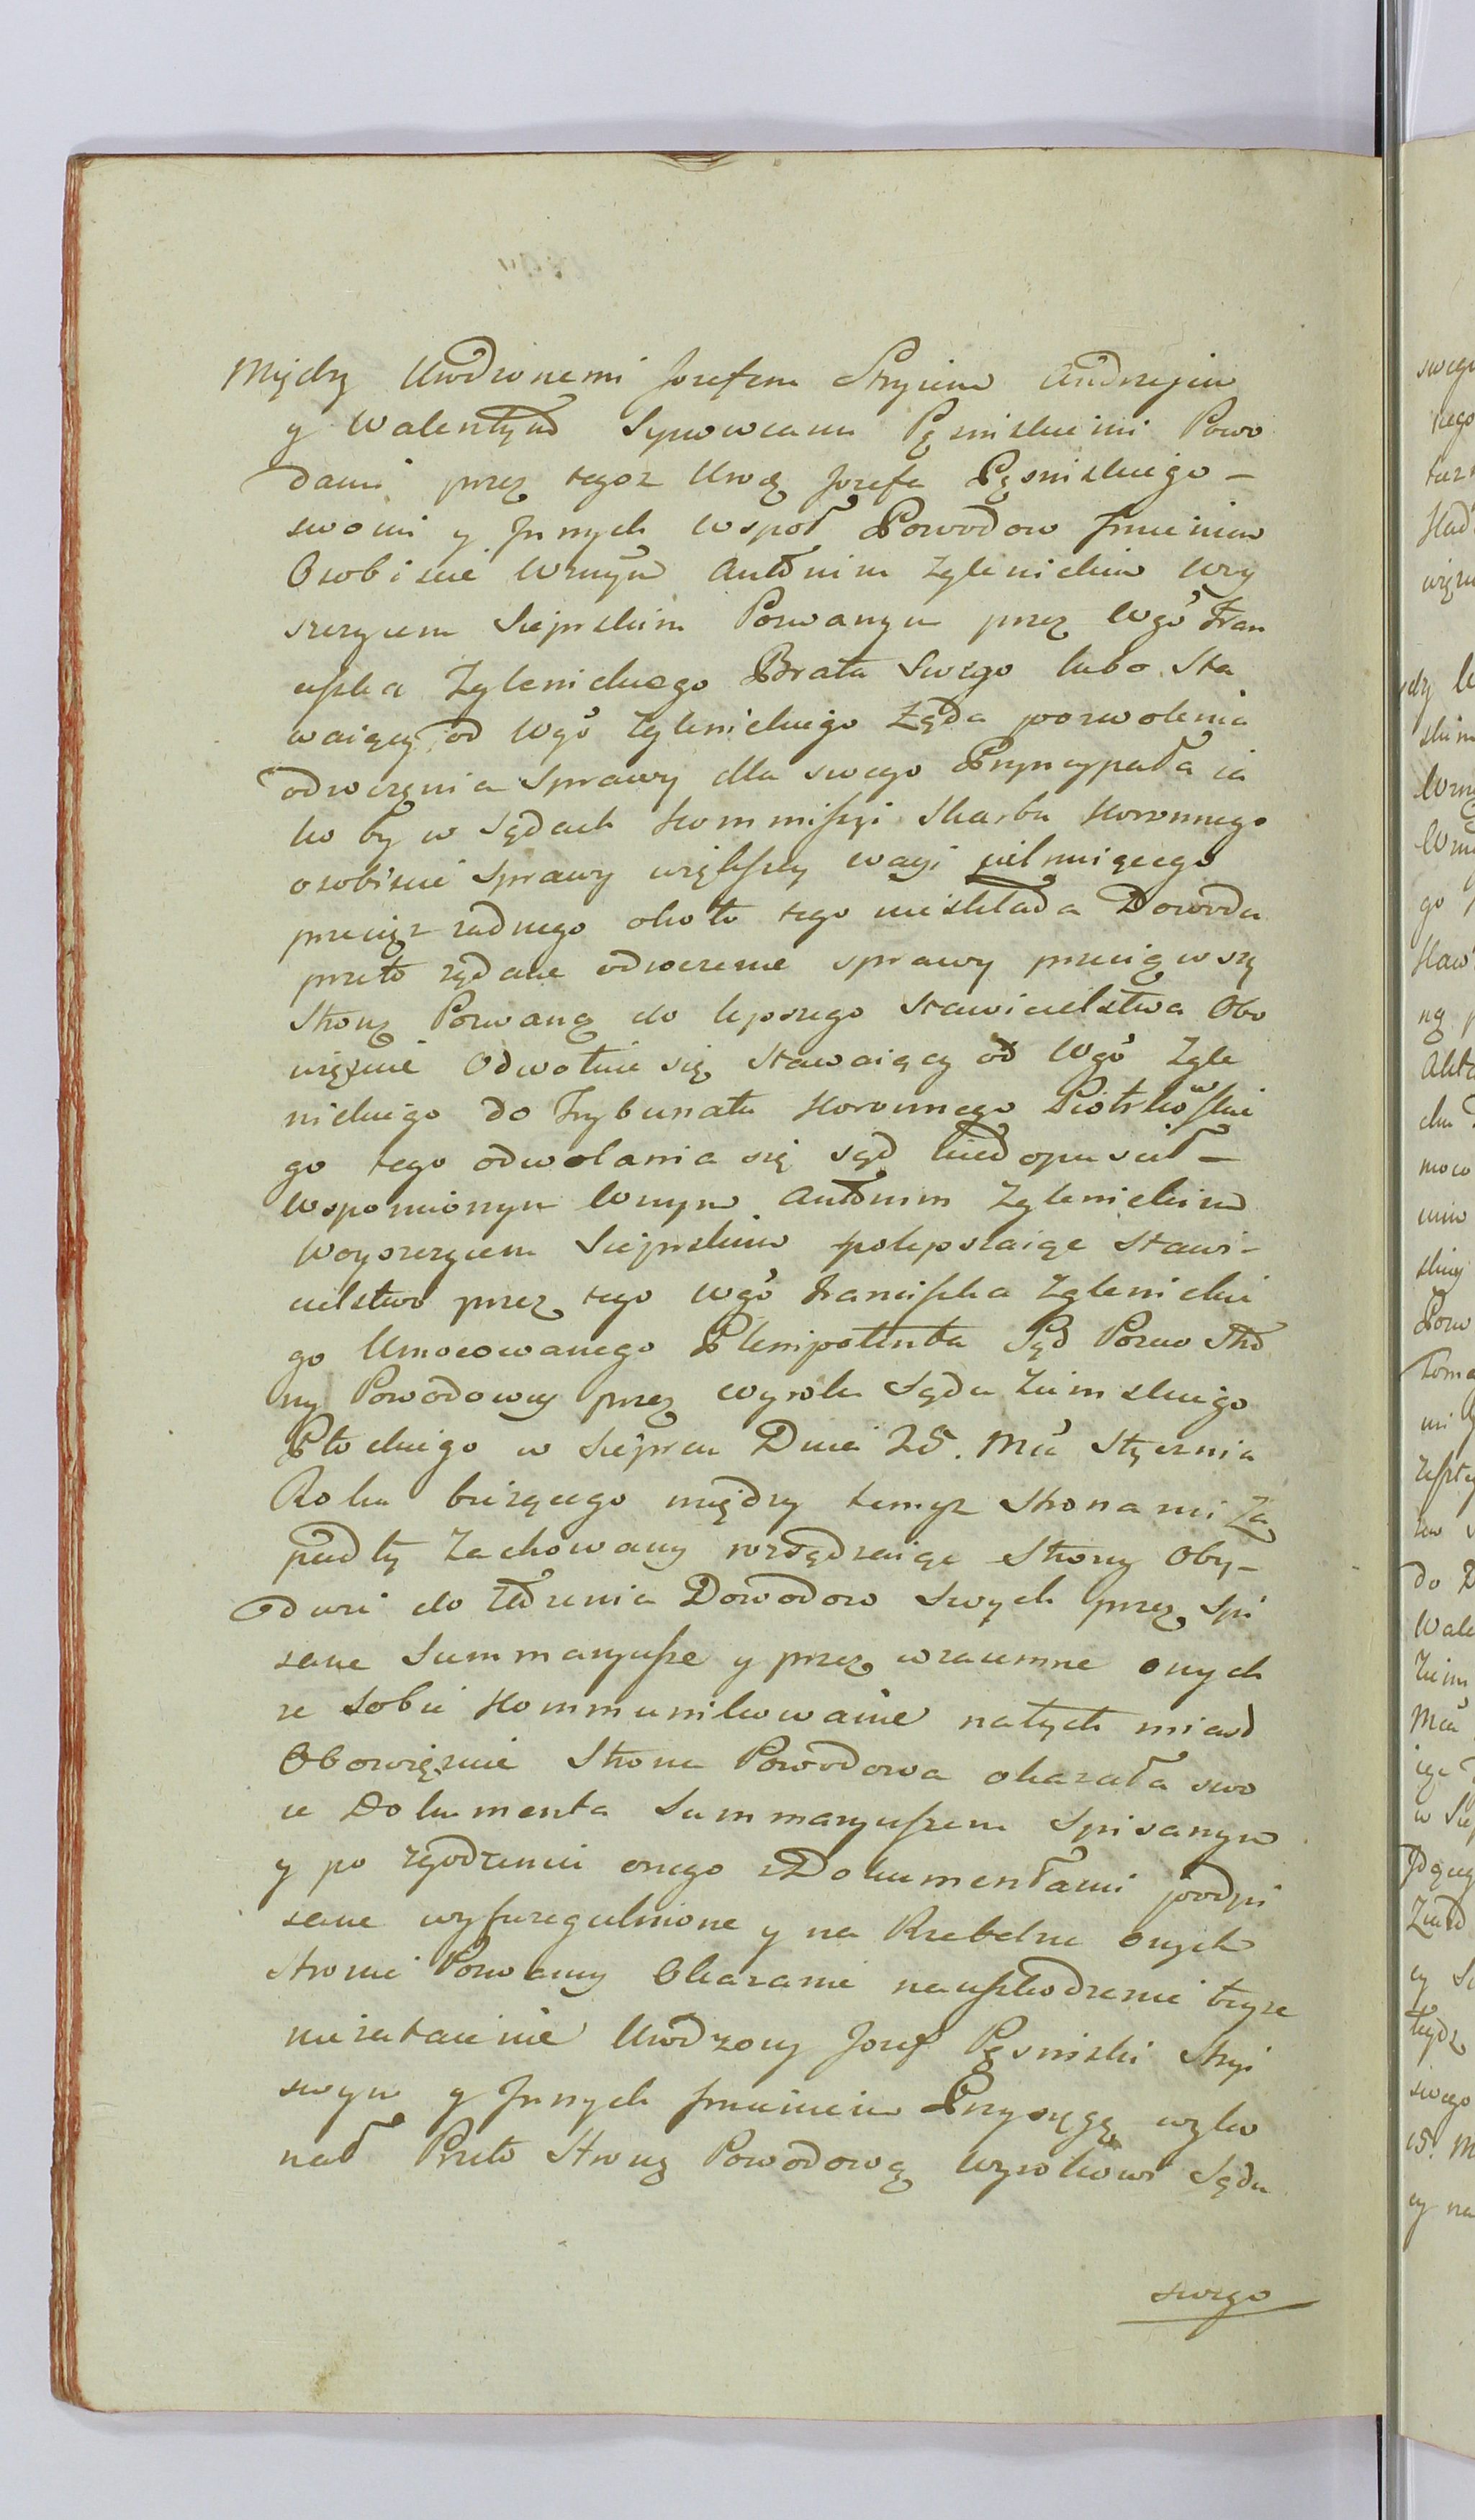 Między Urodzonemi Jozefem Stryiem Andrzejem
y Walentym Synowcami Pęsinskiemi Powo
dami przez tegoz Uroo Jozefa Pęsinskiego –
swoim y Innych wspoł Powodow Imieniem
Osobiscie Wmym Antonim Zglenickim Woy
szczycem Sieprskim Pozwanym przez Wgo Fran
ciszka Zglenickiego Brata Swego lubo Sta
waiący od Wgo Zglenickiego Ząda pozwolenia
odroczenia Sprawy dla swego Pryncypała ia
ko by w Sądach Kommissyi Skarbu Koronnego
osobiscie Sprawy większey wagi pilnuiącego
przecięz zadnego około tego nieskłada Dowodu
przeto ządane odroczenie sprawy przeciąwszy
Stronę Pozwaną do lepszego stawicielstwa Obo
wiązuie Odwołuie się Stawaiący od Wgo Zgle
nickiego do Trybunału Koronnego Piotrkowskie
go tego odwolania się sąd niedopuscił –
Wspomnionym Wmym Antonim Zglenickim
Woyszczycem Sieprskim polepszaiąc stawi-
cielstwo przez tego Wgo Franciszka Zglenickie
go Umocowanego Plenipotenta Sąd Pozew Stro
ny Powodowey przez wyrok Sądu Ziemskiego
Płockiego w Sieprcu Dnia 25. Mca Stycznia
Roku biezącego między temyz Stronami Za
padły Zachowany rozsądzaiąc Strony Oby-
dwie do złozenia Dowodow Swych przez Spi
sane Summaryusze y przez wzaiemne onych
ze sobie Kommunikowanie natych miast
Obowięzuie Strona Powodowa okazała swo
ie Dokumenta Summaryuszem Spisanym
y po zgodzeniu onego z Dokumentami podpi
sane wyszczegulnione y na Rzetelne onych
Stronie Pozwaney Okazanie nauszkodzenie teyze
niezataienie Urodzony Jozef Pęsinski Stryi
swym y Innych Imieniem Przysięgę wyko
nał Przeto Stronę Powodową wyrokowi Sądu
swego